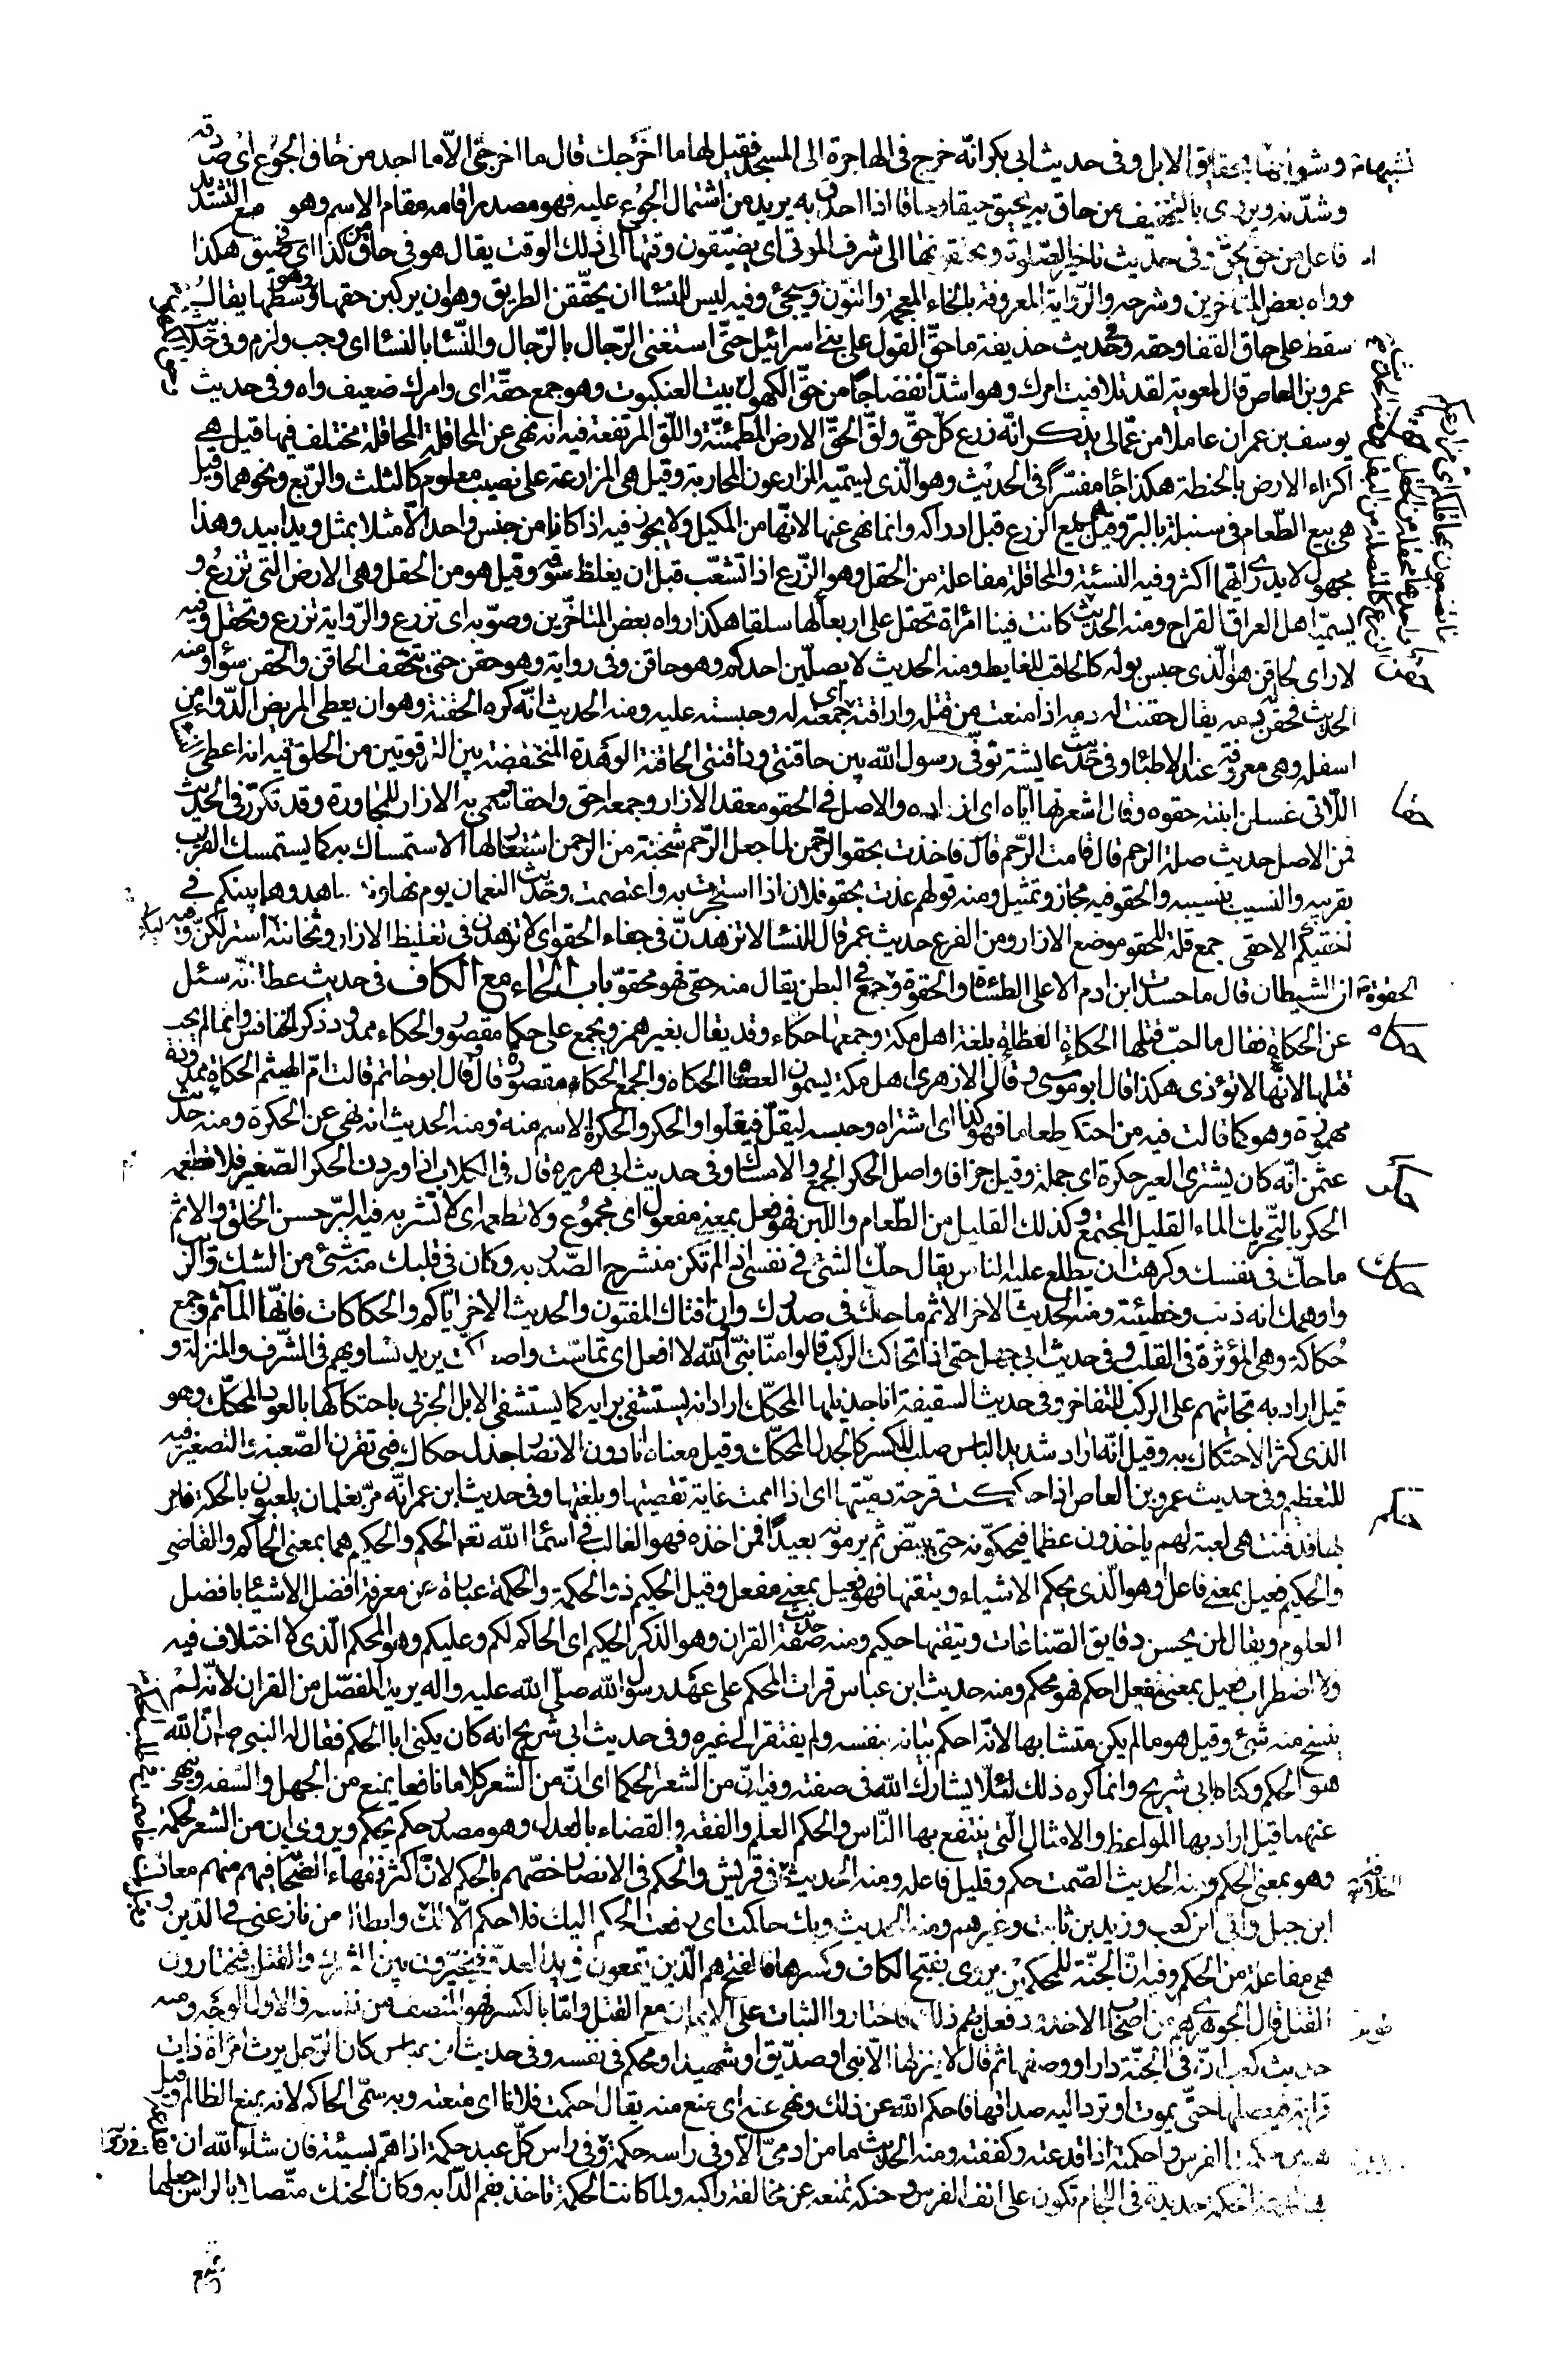 وشوابها بحقايق الابل وفى حديث ابى بكر انّه خرج فى الهاجرة الى المسجد فقيل لها ما اخرجك قال ما اخرجنى الّا ما اجد من حاق الجوع اى صدقه
وشدّته ويروى بالتخفيف من حاق به يحيق حيقا وحاقا اذا احدق به يريد من اشتمال الجوع عليه فهو مصدر اقامه مقام الاسم وهو مع التشديد
فاعل من حقّ يحقّ وفى حديث تاخير الصّلوة ويحتقونها الى شرف الموتى اى يضيّقون وقتها الى ذلك الوقت يقال هو فى حاق من كذا اى فى ضيق هكذا
رواه بعض المتاخرين وشرحه والرّواية المعروفة بالخاء المعجمة والنّون وسيجئ وفيه ليس للنّسا ان يحققن الطريق وهو ان يركبن حقها وهو وسطها يقال
سقط على حاق القفا وحقه وفى حديث حذيفة ما حقّ القول على بنى اسرائيل حتّى استغنى الرّجال بالرّجال والنّسا بالنّسا اى وجب ولزم وفى حديث
عمرو بن العاص قال لمعوية لقد تلافيت امرك وهو اشدّ انفضاجًا من حقّ الكهول بيت العنكبوت وهو جمع حقّة اى وامرك ضعيف واه وفى حديث
يوسف بن عمران عاملا من عمّالى يذكر انّه زرع كلّ حقّ ولقّ الحقّ الارض المطمئنّة واللّق المرتفعة فيه انه نهى عن المحاقلة المحاقلة مختلف فيها قيل هى
اكتراء الارض بالحنطة هكذا جا مفسّرا فى الحديث وهو الّذى يسمّيه الزارعون المحاربة وقيل هى المزارعة على نصيب معلوم كالثلث والرّبع ونحوهما وقيل
هى بيع الطّعام فى سنبله بالبرّ وقيل بيع الزرع قبل ادراكه وانما نهى عنها لانّها من المكيل ولا يجوز فيه اذا كانا من جنس واحد الّا مثلا بمثل ويدا بيد وهذا
مجهول لا يدرى ايّهما اكثر وفيه النسئة والمحاقلة مفاعلة من الحقل وهو الزّرع اذا تشعّب قبل ان يغلظ سوقه وقيل هو من الحقل وهى الارض التى تزرع و
يسمّيه اهل العراق القراح ومنه الحديث كانت فينا امرأة تحقل على اربعا لها سلقا هكذا رواه بعض المتاخّرين وصوّبه اى تزرع والرّواية تزرع وتحقل وفيه
لا راى لحاقن هو الّذى حبس بوله كالحاقب للغايط ومنه الحديث لا يصلّين احدكم وهو حاقن وفى رواية وهو حقن حتى يتخفف الحاقن والحقن سواء ومنه
الحديث فحقن به دمه يقال حقنت له دمه اذا منعت من قتله واراقته اى جمعته له وحبسته عليه ومنه الحديث انّه كره الحقنة وهو ان يعطى المريض الدّواء من
اسفله وهى معروفة عند الاطبّا وفى حديث عايشة توفّى رسول الله بين حاقنتى وذاقنتى الحاقنة الوهدة المنخفضة بين الترقوتين من الحلق فيه انه اعطى
اللّاتى غسلن ابنته حقوه وقال اشعرنها ايّاه اى ازاره والاصل فى الحقو معقد الازار وجمعه احق واحقا سمى به الازار للمجاورة وقد تكرّر فى الحديث
فمن الاصل حديث صلة الرحم قال قامت الرّحم قال فاخذت بحقو الرّحمن لما جعل الرّحم شجنة من الرحمن استعار لها الاستمساك به كما يستمسك القريب
بقريبه والنسيب بنسيبه والحقو فيه مجاز وتمثيل ومنه قولهم عذت بحقو فلان اذا استجرت به واعتصمت وحديث النعمان يوم نهاوند تعاهدوا هماينكم فى
احقيكم الاحقى جمع قلة للحقو موضع الازار ومن الفرع حديث عمر قال للنسا لا تزهدنّ فى جفاء الحقو اى لا تزهدن فى تغليظ الازار وثخانته استر لكنّ وفيه
ان الشيطان قال ما حسدت ابن ادم الا على الطسأة والحقوة وجع فى البطن يقال منه حقى فهو محقوّ باب الحاء مع الكاف فى حديث عطا انّه سئل
عن الحكاة فقال ما احبّ قتلها الحكاة العظاة بلغة اهل مكة وجمعها حكاء وقد يقال بغير همز ويجمع على حكا مقصور والحكاء ممدود ذكر الخنافس وانما لم يجب
قتلها لانّها لا تؤذى هكذا قال ابو موسى وقال الازهرى اهل مكة يسمون العظا الحكاة والجمع الحكا مقصورة قال وقال ابو حاتم قالت امّ الهيثم الحكاة ممدودة
مهموزة وهو كما قالت فيه من احتكر طعاما فهو كذا اى اشتراه وحبسه ليقلّ فيغلوا والحكر والحكرة الاسم منه ومنه الحديث انه نهى عن الحكرة ومنه حديث
عثمن انّه كان يشترى العير حكرة اى جملة وقيل جزافا واصل الحكر الجمع والامساك وفى حديث ابى هريرة قال فى الكلاب اذا وردن الحكر الصّغير فلا تطعمه
الحكر بالتّحريك الماء القليل المجتمع وكذلك القليل من الطّعام واللبن فهو فعل بمعنى مفعول اى مجموع ولا تطعمه اى لا تشربه فيه البرّ حسن الخلق والاثم
ما حكّ فى نفسك وكرهت ان يطلع عليه الناس يقال حكّ الشئ فى نفسى اذا لم تكن منشرح الصّدر به وكان فى قلبك منه شئ من الشك والرّيب
واوهمك انه ذنب وخطيئة ومنه الحديث الاخر الاثم ما حكّ فى صدرك وان افتاك المفتون والحديث الاخر ايّاكم والحكاكات فانّها المآثم وجمع
حُكاكة وهى المؤثرة فى القلب وفى حديث ابى جهل حتى اذا تحاكت الركب قالوا منّا نبىّ والله لا افعل اى تماسّت واصطكّت يريد تساويهم فى الشّرف والمنزلة و
قيل اراد به تجاثيهم على الركب للتفاخر وفى حديث السقيفة انا جذيلها المحكّك اراد انه يستشفى برايه كما يستشفى الابل الجربى باحتكاكها بالعود المحكّك وهو
الذى كثر الاحتكاك به وقيل انّه اراد شديد الباس صلب الكسر كالجذل المحكّك وقيل معناه انا دون الانصار جذل حكاك فبى تقرن الصّعبة والتصغير فيه
للتعظيم وفى حديث عمرو بن العاص اذا حككت قرحة دميّتها اى اذا اممت غاية تقصيتها وبلغتها وفى حديث ابن عمر انّه مرّ بغلمان يلعبون بالحكّة فامر
بها فدفنت هى لعبة لهم ياخذون عظما فيحكّونه حتى يبيضّ ثم يرمونه بعيدًا فمن اخذه فهو الغالب فى اسما الله تعالى الحكم والحكيم هما بمعنى الحاكم والقاضى
والحكيم فعيل بمعنى فاعل او هو الّذى يحكم الاشياء ويتقنها فهو فعيل بمعنى مفعل وقيل الحكيم ذو الحكمة والحكمة عبارة عن معرفة افضل الاشيا بافضل
العلوم ويقال لمن يحسن دقايق الصّناعات ويتقنها حكيم ومنه حديث صفة القران وهو الذكر الحكيم اى الحاكم لكم وعليكم وهو المحكم الّذى لا اختلاف فيه
ولا اضطراب فعيل بمعنى مفعل احكم فهو محكم ومنه حديث ابن عباس قرات المحكم على عهد رسول الله صلّى الله عليه واله يريد المفصّل من القران لانّه لم
ينسخ منه شئ وقيل هو ما لم يكن متشابها لانّه احكم بيانه بنفسه ولم يفتقر الى غيره وفى حديث ابى شريح انه كان يكنى ابا الحكم فقال له النبى ص انّ الله
هو الحكم وكناه بابى شريح وانما كره ذلك لئلّا يشارك الله فى صفته وفيه انّ من الشعر لحكما اى انّ من الشعر كلاما نافعا يمنع من الجهل والسّفه وينهى
عنهما قيل اراد بها المواعظ والامثال الّتى ينتفع بها النّاس والحكم العلم والفقه والقضاء بالعدل وهو مصدر حكم يحكم ويروى ان من الشعر لحكمة
وهو بمعنى الحكم ومنه الحديث الصّمت حكم وقليل فاعله ومنه الحديث فى قريش والحكم فى الانصار خصّهم بالحكم لانّ اكثر فقهاء الصّحابة فيهم منهم معاذ
ابن جبل وابىّ ابن كعب وزيد بن ثابت وغيرهم ومنه الحديث وبك حاكمت اى رفعت الحكم اليك فلا حكم الّا لك وابطال من نازعنى فى الدّين و
هى مفاعلة من الحكم وفيه انّ الجنّة للمحكمين يروى بفتح الكاف وكسرها فالفتح هم الّذين يقعون فى يد العدوّ فيخيّرون بين الشرك والقتل فيختارون
القتل قال الجوهرى هم من اصحاب الاخدود فعل بهم ذلك فاختاروا الثبات على الايمان مع القتل وامّا بالكسر فهو المنصف من نفسه والاول الوجه ومنه
حديث كعب انّ فى الجنّة دارا ووصفها ثم قال لا ينزلها الّا نبى او صدّيق او شهيد او محكم فى نفسه وفى حديث ابن عباس كان الرّجل يرث امرأة ذات
قرابة فيعضلها حتّى يموت او تردّ اليه صداقها فاحكم الله عن ذلك ونهى عنه اى منع منه يقال احكمت فلانا اى منعته وبه سمّى الحاكم لانه يمنع الظالم وقيل
الفرس واحكمته اذا قدعته وكففته ومنه الحديث ما من ادمىّ الّا وفى راسه حكمة وفى راس كلّ عبد حكمة اذا همّ بسيئة فان شاء الله ان
الحكمة حديدة فى اللجام تكون على انف الفرس وحنكه تمنعه عن مخالفة راكبه ولما كانت الحكمة تاخذ بفم الدّابة وكان الحنك متّصلا بالراس جعلها